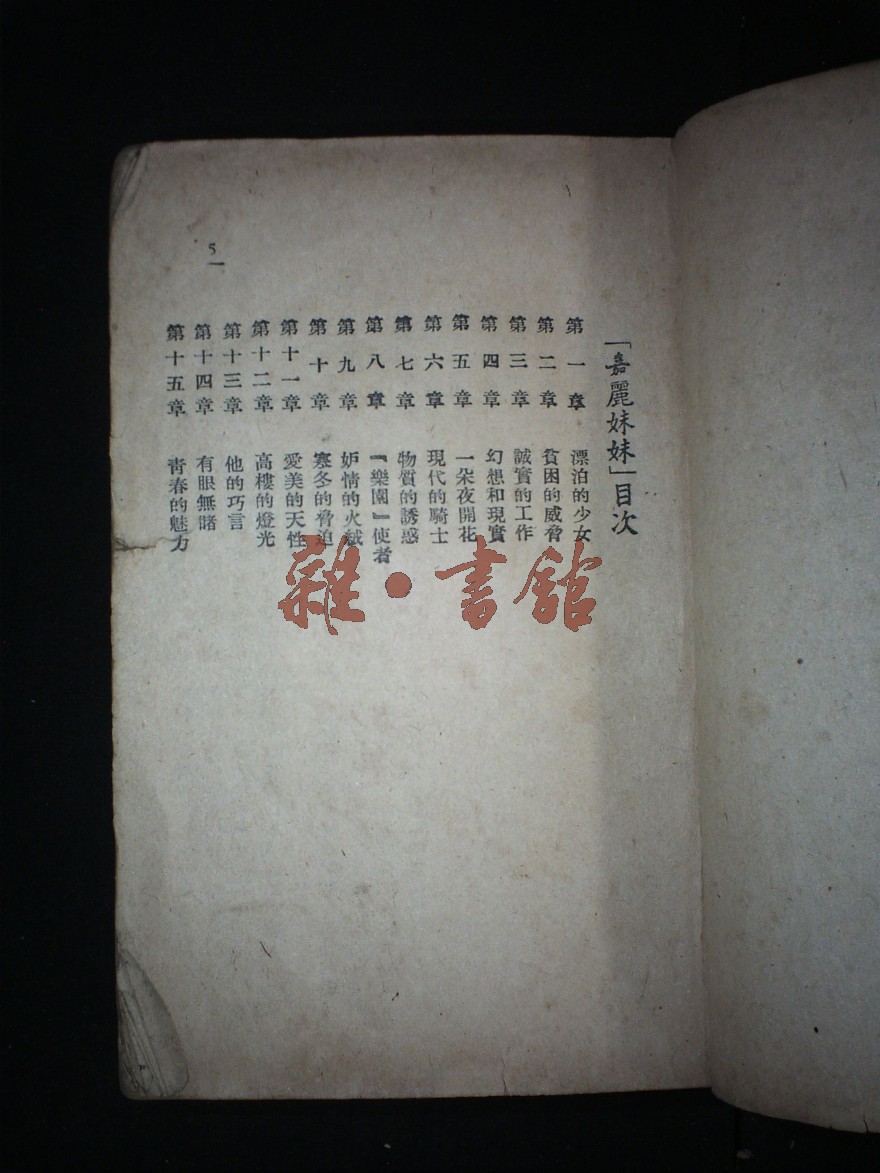 「嘉麗妹妹」目次
第一章 漂泊的少女
第二章 貧困的威脅
第三章 誠實的工作
第四章 幻想和現實
第五章 一朵夜開花
第六章 現代的騎士
第七章 物質的誘惑
第八章 『樂園』使者
第九章 妒情的火
第十章 寒冬的脅迫
第十一章 愛美的天性
第十二章 高樓的燈光
第十三章 他的巧言
第十四章 有眼無睹
第十五章 青春的魅力
5
雜·書館